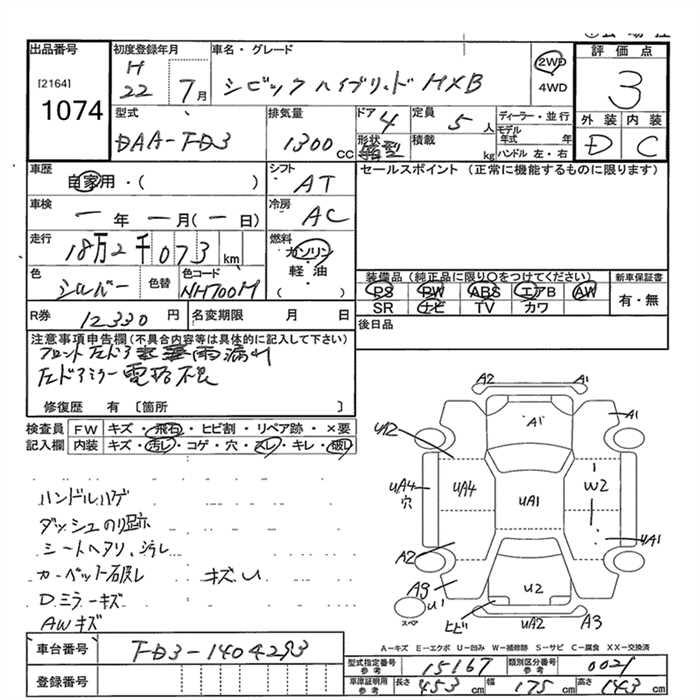 出品番号
[2164]
1074
初度登録年月
H
22 7月
車名・グレード
シビックハイブリッド MXB
2WD
4WD
評価点
3
外装 内装
D C
型式
DAA-FD3
排気量
1300 CC
ドア 4
形状 箱型
定員 5人
積載 kg
ディーラー・並行
モデル年式 年
ハンドル 左・右
車歴
自家用・( )
シフト
AT
セールスポイント (正常に機能するものに限ります)
車検
ー年 ー月(ー日)
冷房
AC
走行
18万2千073 km
燃料
ガソリン
軽油
( )
色
シルバー
色替
色コード
NH700M
装備品(純正品に限り○をつけてください)
PS PW ABS エアB AW
SR ナビ TV カワ
新車保証書
有・無
R券 12330円
名変期限 月 日
後日品
注意事項申告欄(不具合内容等は具体的に記入して下さい)
フロント左ドア 雨漏り
左ドアミラー電格不良
修復歴 有〔箇所 〕
検査員記入欄
FW キズ・飛石・ヒビ割・リペア跡・×要
内装 キズ・汚レ・コゲ・穴・スレ・キレ・破レ
ハンドルハゲ
ダッシュのり跡
シートヘタリ、汚レ
カーペット破レ キズU
Dミラーキズ
AWキズ
A2 A1
A1 A1
UA2
UA4 穴 UA4 UA1 W2
UA1
A2
A3 U1 U2
スペア ヒビ UA2 A3
A-キズ E-エクボ U-凹み W-補修跡 S-サビ C-腐食 XX-交換済
車台番号
FD3-1404293
登録番号
型式指定番号 参考 15167
類別区分番号 参考 0021
車庫証明用 参考 長さ 453cm 幅 175cm 高さ 143cm